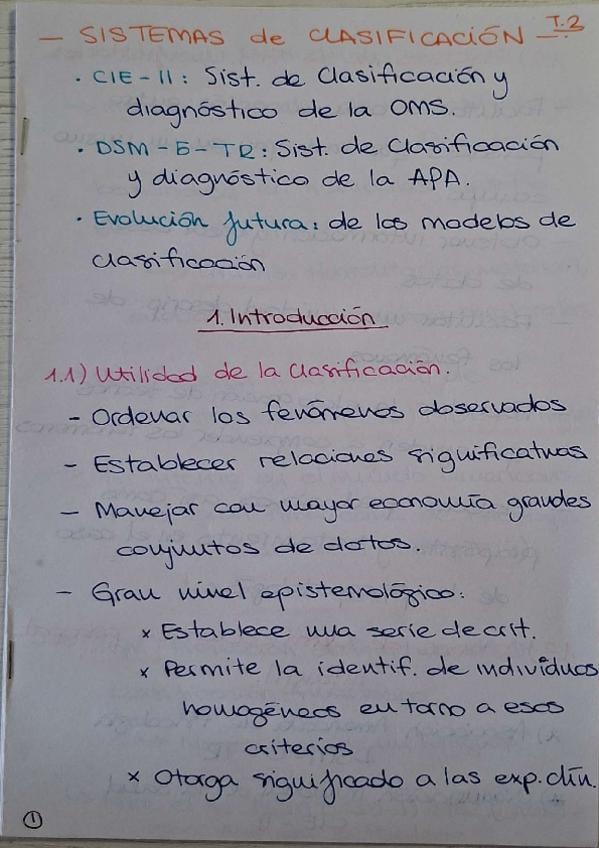 - SISTEMAS de CLASIFICACIÓN - T.2
· CIE-11: Sist. de Clasificación y
diagnóstico de la OMS.
· DSM-5-TR: Sist. de Clasificación
y diagnóstico de la APA.
· Evolución futura: de los modelos de
clasificación
1. Introducción
1.1) Utilidad de la Clasificación.
- Ordenar los fenómenos observados
- Establecer relaciones significativas
- Manejar con mayor economía grandes
conjuntos de datos.
- Gran nivel epistemológico:
x Establece una serie de crit.
x Permite la identif. de individuos
homogéneos en torno a esos
criterios
x Otorga significado a las exp. clín.
1